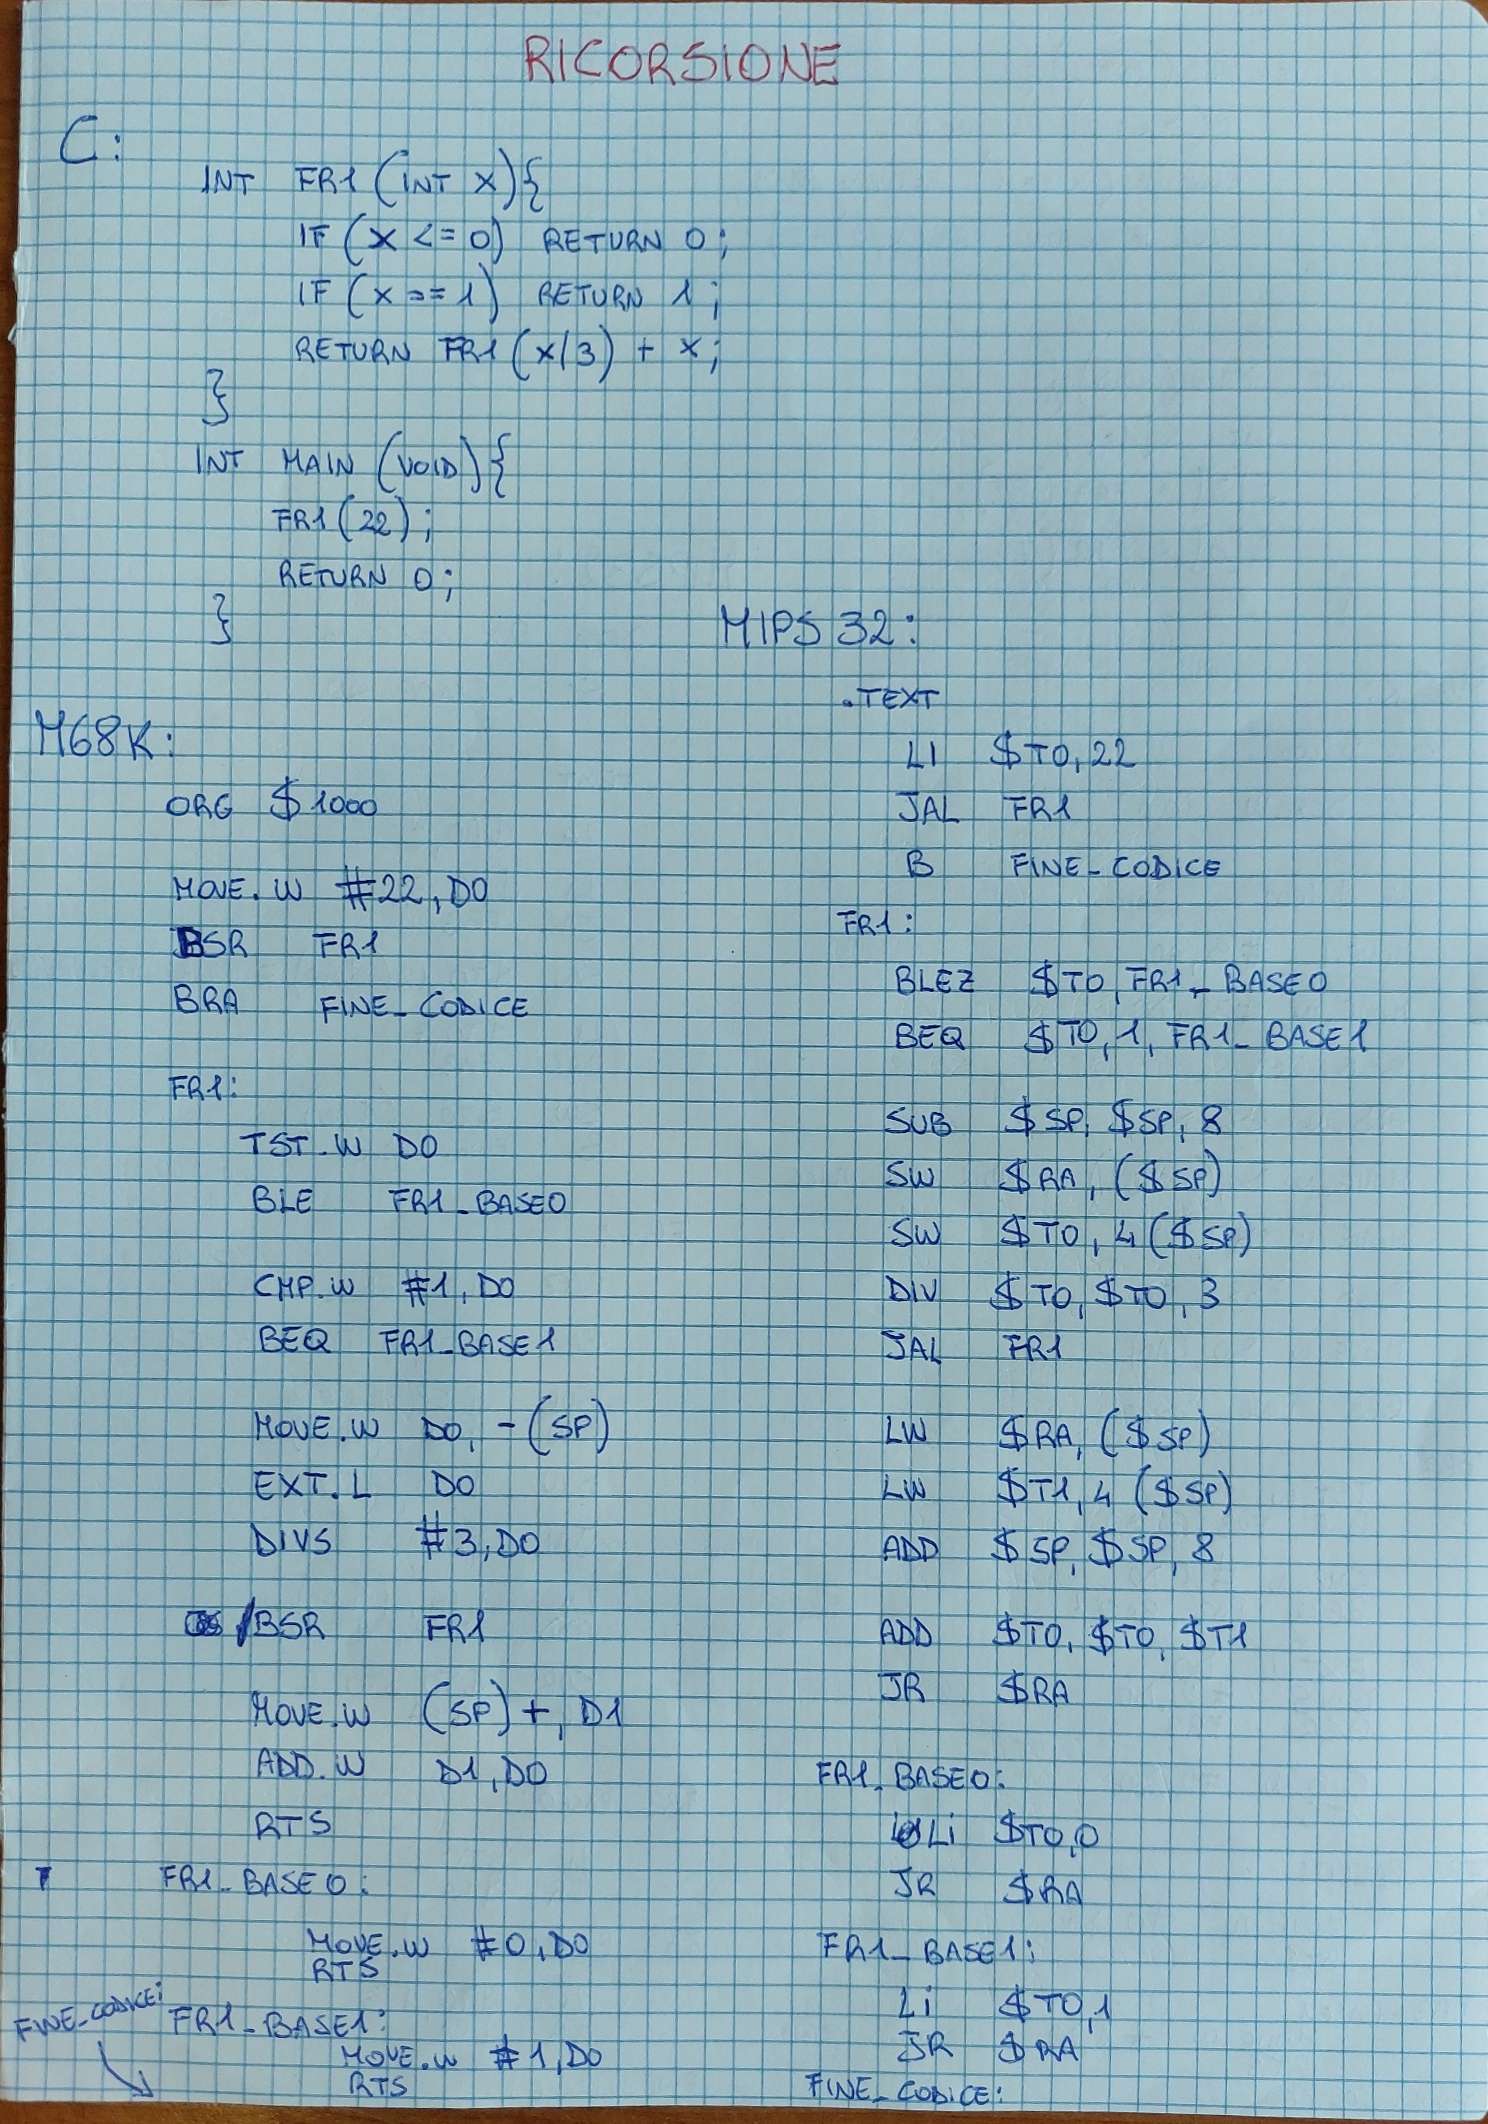 RICORSIONE
C:
INT FR1 (INT X){
IF (X <= 0) RETURN 0;
IF (X == 1) RETURN 1;
RETURN FR1 (X/3) + X;
}
INT MAIN (VOID){
FR1 (22);
RETURN 0;
}
M68K:
ORG $1000
MOVE.W #22, D0
BSR FR1
BRA FINE_CODICE
FR1:
TST.W D0
BLE FR1_BASE0
CMP.W #1, D0
BEQ FR1_BASE1
MOVE.W D0, -(SP)
EXT.L D0
DIVS #3, D0
BSR FR1
MOVE.W (SP)+, D1
ADD.W D1, D0
RTS
FR1_BASE0:
MOVE.W #0, D0
RTS
FR1_BASE1:
MOVE.W #1, D0
RTS
FINE_CODICE:
MIPS 32:
.TEXT
LI $T0, 22
JAL FR1
B FINE_CODICE
FR1:
BLEZ $T0, FR1_BASE0
BEQ $T0, 1, FR1_BASE1
SUB $SP, $SP, 8
SW $RA, ($SP)
SW $T0, 4 ($SP)
DIV $T0, $T0, 3
JAL FR1
LW $RA, ($SP)
LW $T1, 4 ($SP)
ADD $SP, $SP, 8
ADD $T0, $T0, $T1
JR $RA
FR1_BASE0:
Li $T0, 0
JR $RA
FR1_BASE1:
Li $T0, 1
JR $RA
FINE_CODICE: